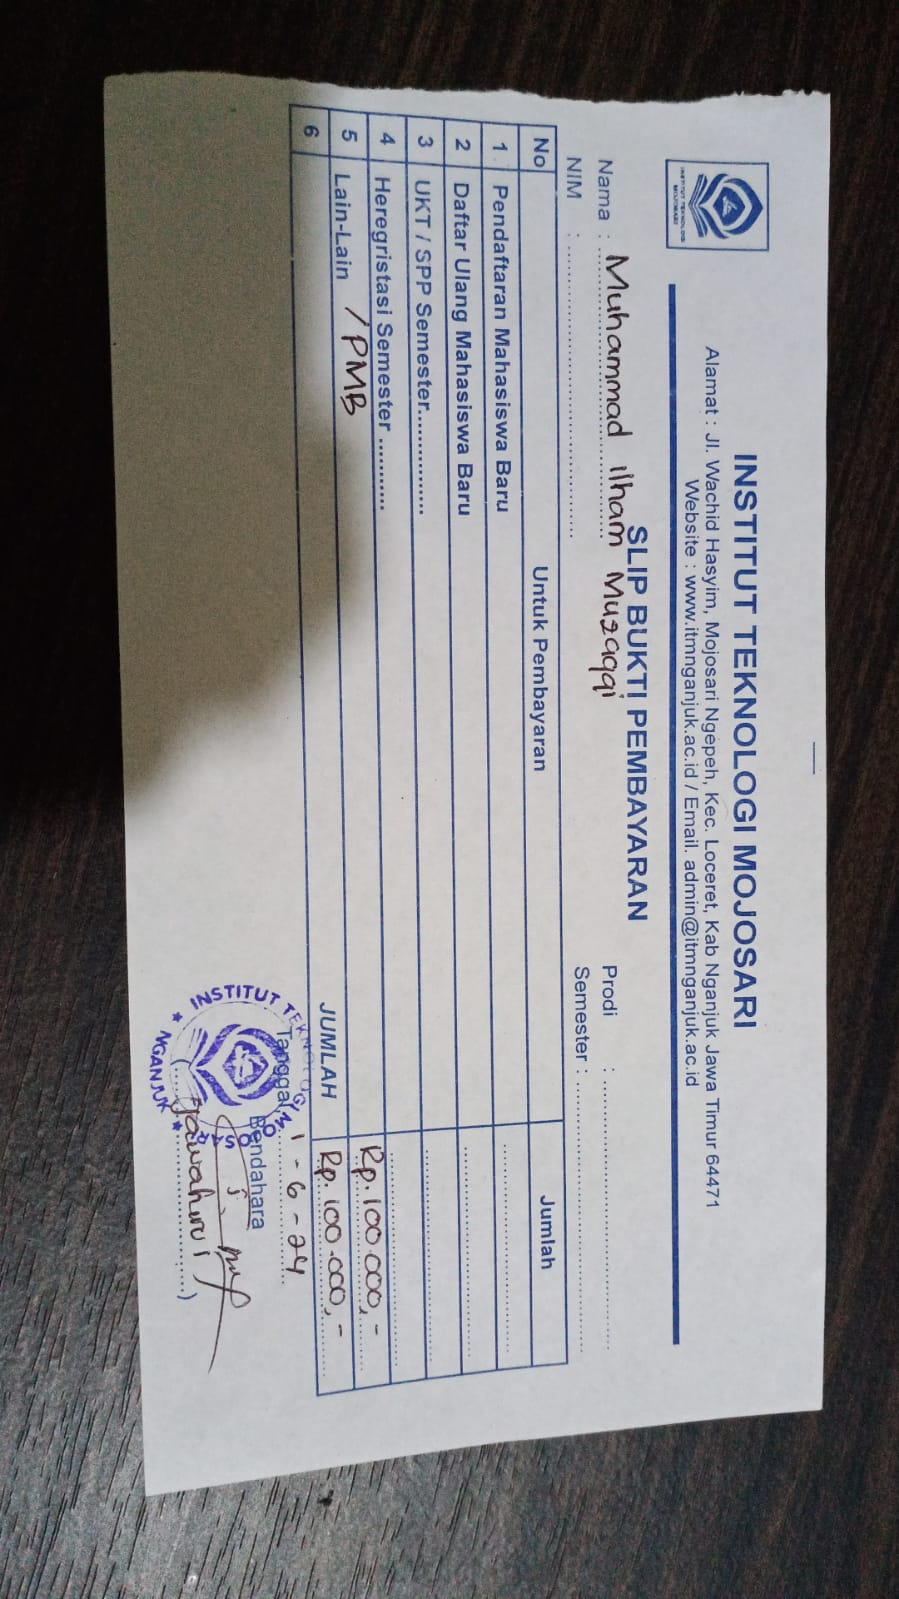 INSTITUT TEKNOLOGI
MOJOSARI
INSTITUT TEKNOLOGI MOJOSARI
Alamat : Jl. Wachid Hasyim, Mojosari Ngepeh, Kec. Loceret, Kab Nganjuk Jawa Timur 64471
Website : www.itmnganjuk.ac.id / Email. admin@itmnganjuk.ac.id
SLIP BUKTI PEMBAYARAN
Nama : Muhammad ilham Muzaqqi Prodi :
NIM : Semester :
No Untuk Pembayaran Jumlah
1 Pendaftaran Mahasiswa Baru
2 Daftar Ulang Mahasiswa Baru
3 UKT / SPP Semester..............
4 Heregristasi Semester ...........
5 Lain-Lain / PMB Rp. 100.000,-
6 JUMLAH Rp. 100.000,-
Tanggal, 1 - 6 - 24
Bendahara
INSTITUT TEKNOLOGI MOJOSARI
★ NGANJUK ★